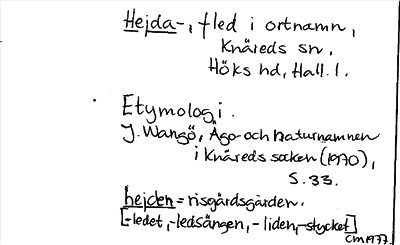 Hejda-, fled i ortnamn,
Knäreds sn,
Höks hd, Hall. l.
Etymologi.
J. Wangö, Ägo- och naturnamnen
i Knäreds socken (1970),
S. 33.
hejden = risgårdsgården.
[-ledet, -ledsängen, -liden, -stycket]
CM 1977